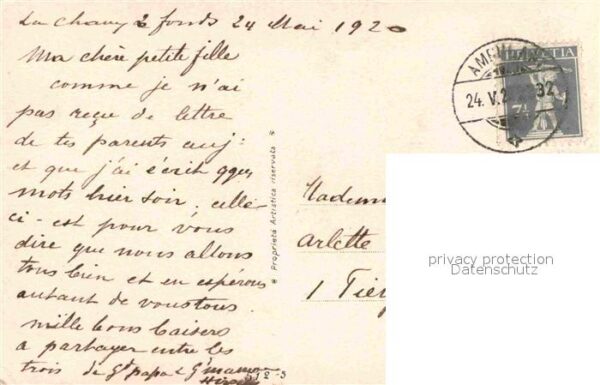 La Chaux 2 fonds 24 Mai 1920
Ma chère petite fille
comme je n'ai
pas reçue de lettre
de tes parents auj:
et que j'ai écrit qqes
mots hier soir. celle-
ci - est pour vous
dire que nous allons
tous bien et en espérons
autant de vous tous.
mille bons baisers
a partager entre les
trois de Gd papa & Gd maman
512-3
8 Proprietà Artistica riservata 8
AMBULANT
24.V.2 32
HELVETIA
7½
Mademoi
Arlette
1 Tier
privacy protection
Datenschutz